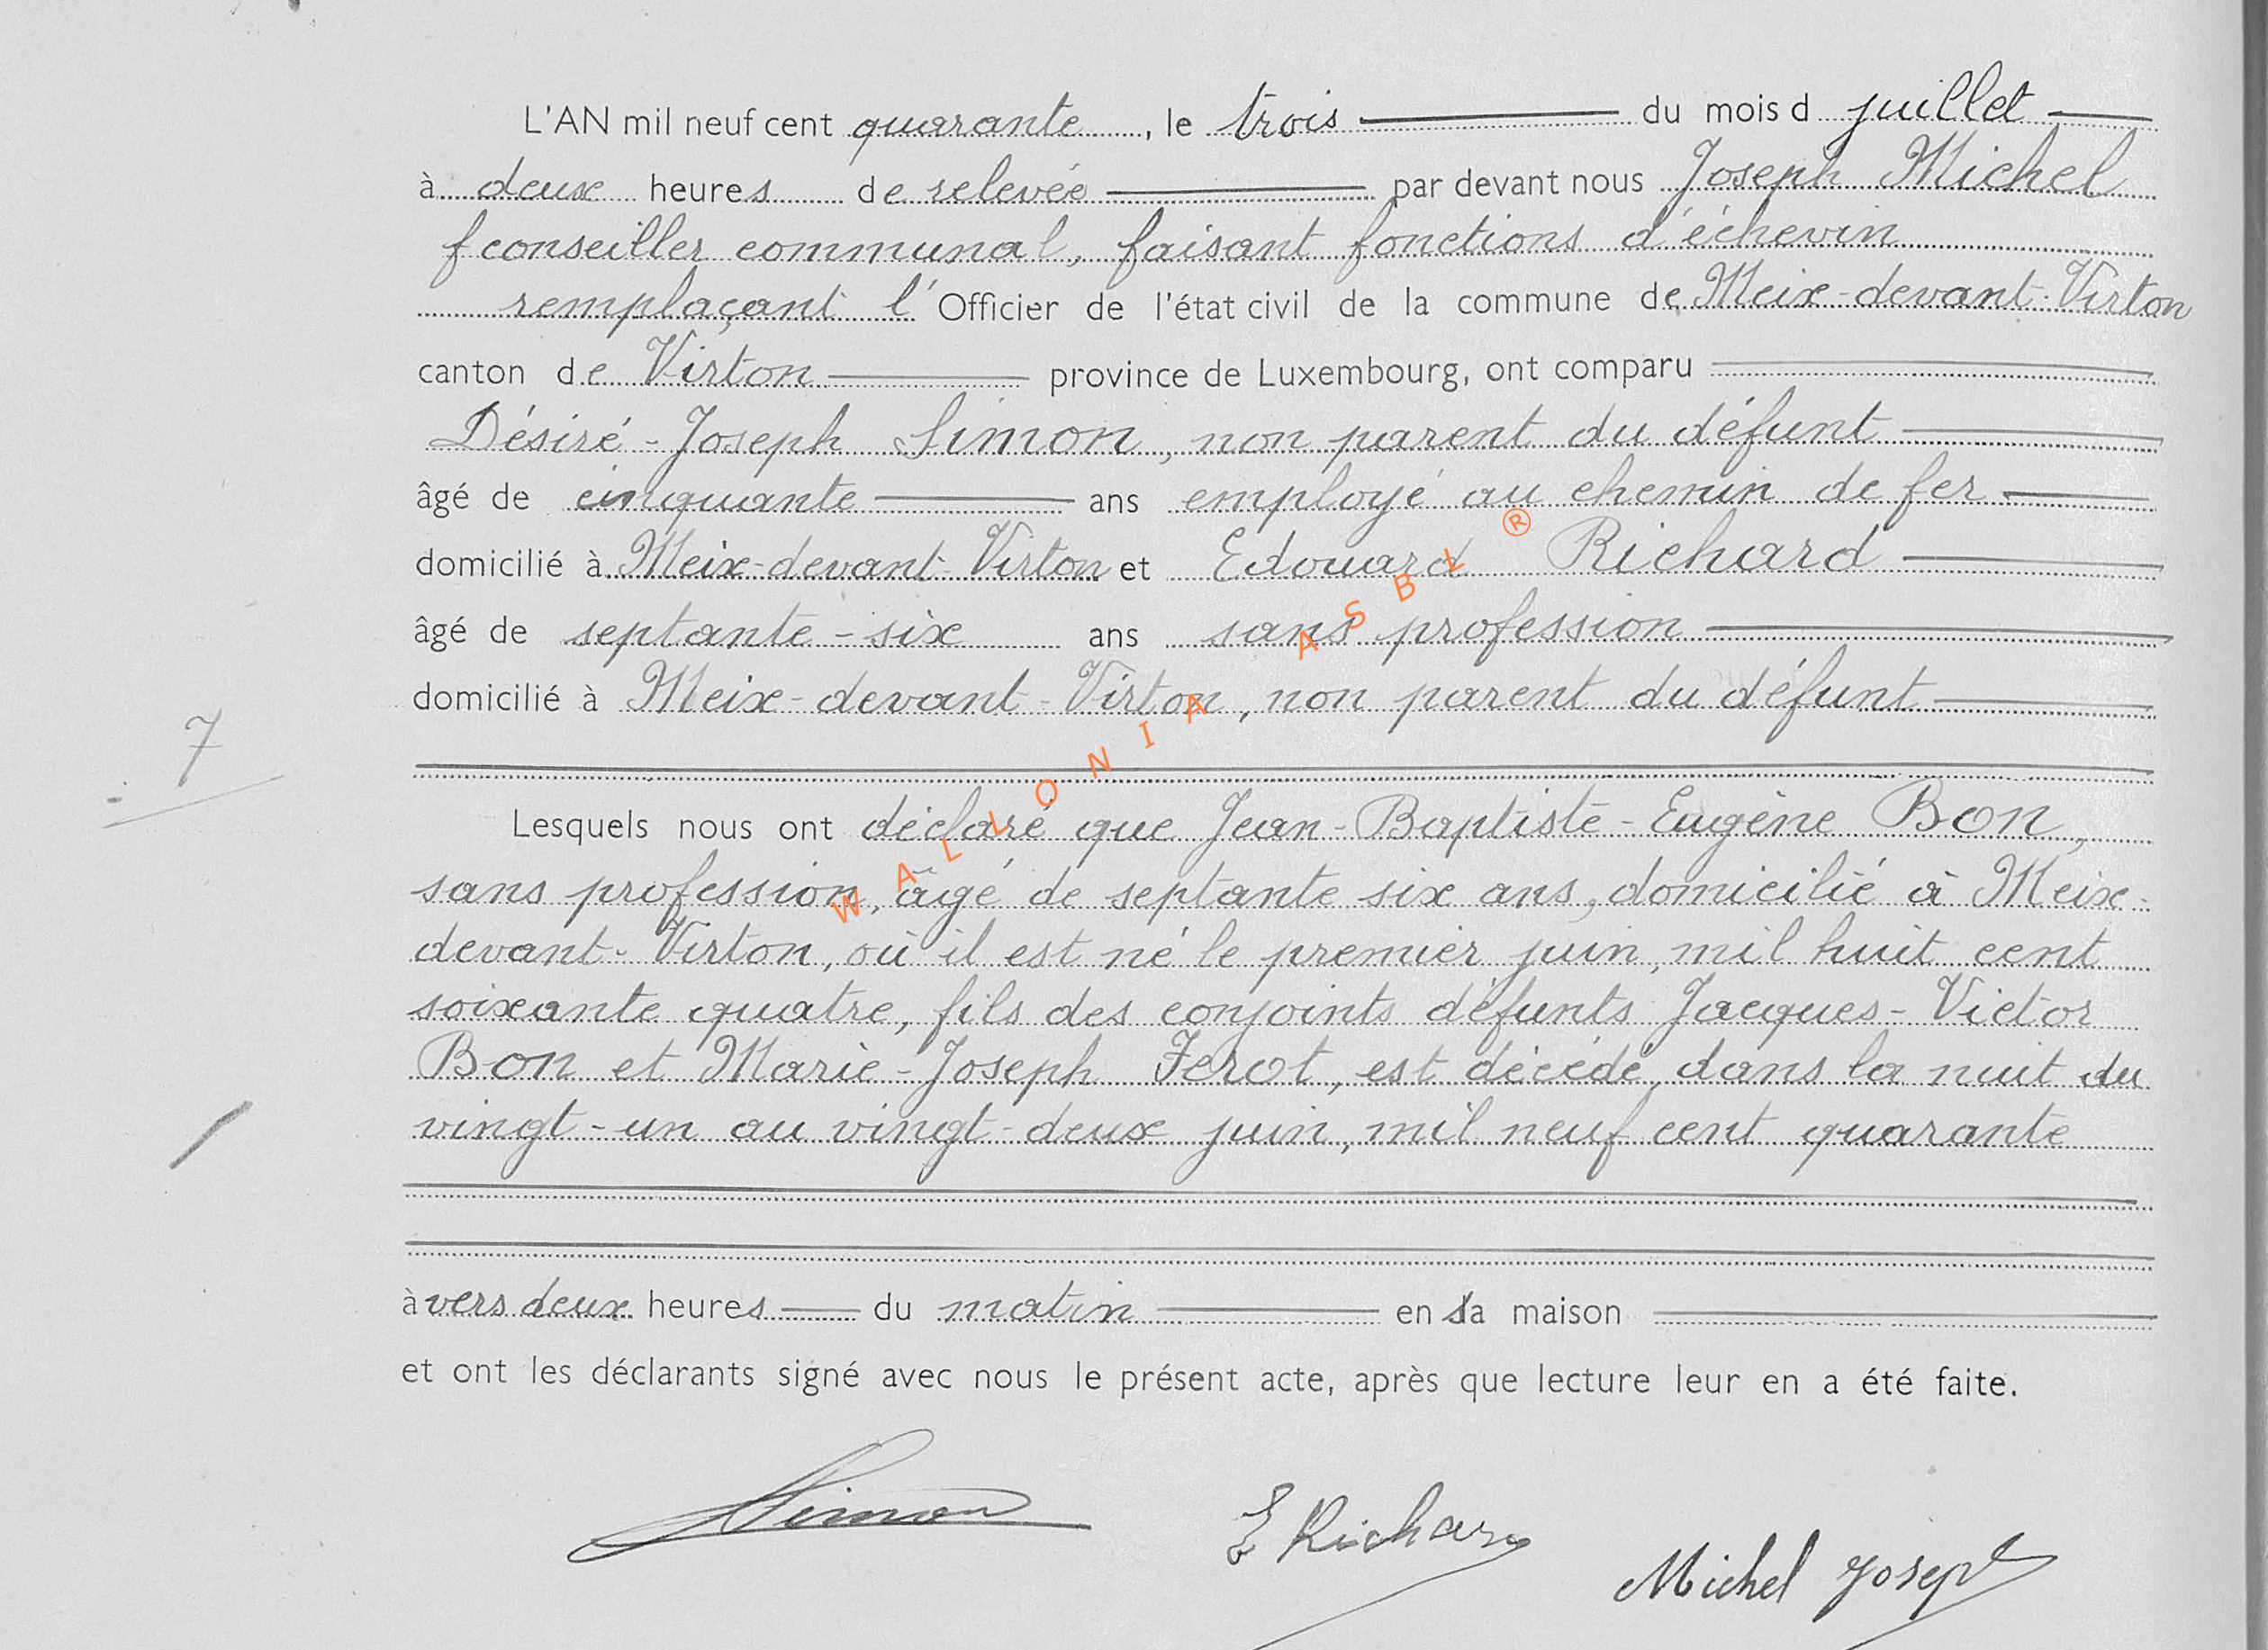 L'AN mil neuf cent quarante, le trois du mois d juillet
à deux heures de relevée par devant nous Joseph Michel
conseiller communal, faisant fonctions d'échevin
remplaçant l'Officier de l'état civil de la commune de Meix-devant-Virton
canton de Virton province de Luxembourg, ont comparu
Désiré-Joseph Simon, non parent du défunt
âgé de cinquante ans employé au chemin de fer
domicilié à Meix-devant-Virton et Edouard Richard
âgé de septante-six ans sans profession
domicilié à Meix-devant-Virton, non parent du défunt
7
Lesquels nous ont déclaré que Jean-Baptiste-Eugène Bon,
sans profession, âgé de septante six ans, domicilié à Meix-
devant-Virton, où il est né le premier juin, mil huit cent
soixante quatre, fils des conjoints défunts Jacques-Victor
Bon et Marie-Joseph Ferot, est décédé, dans la nuit du
vingt-un au vingt-deux juin, mil neuf cent quarante
à vers deux heures du matin en sa maison
et ont les déclarants signé avec nous le présent acte, après que lecture leur en a été faite.
Simon
E Richard
Michel Joseph
WALLONIA ASBL ®